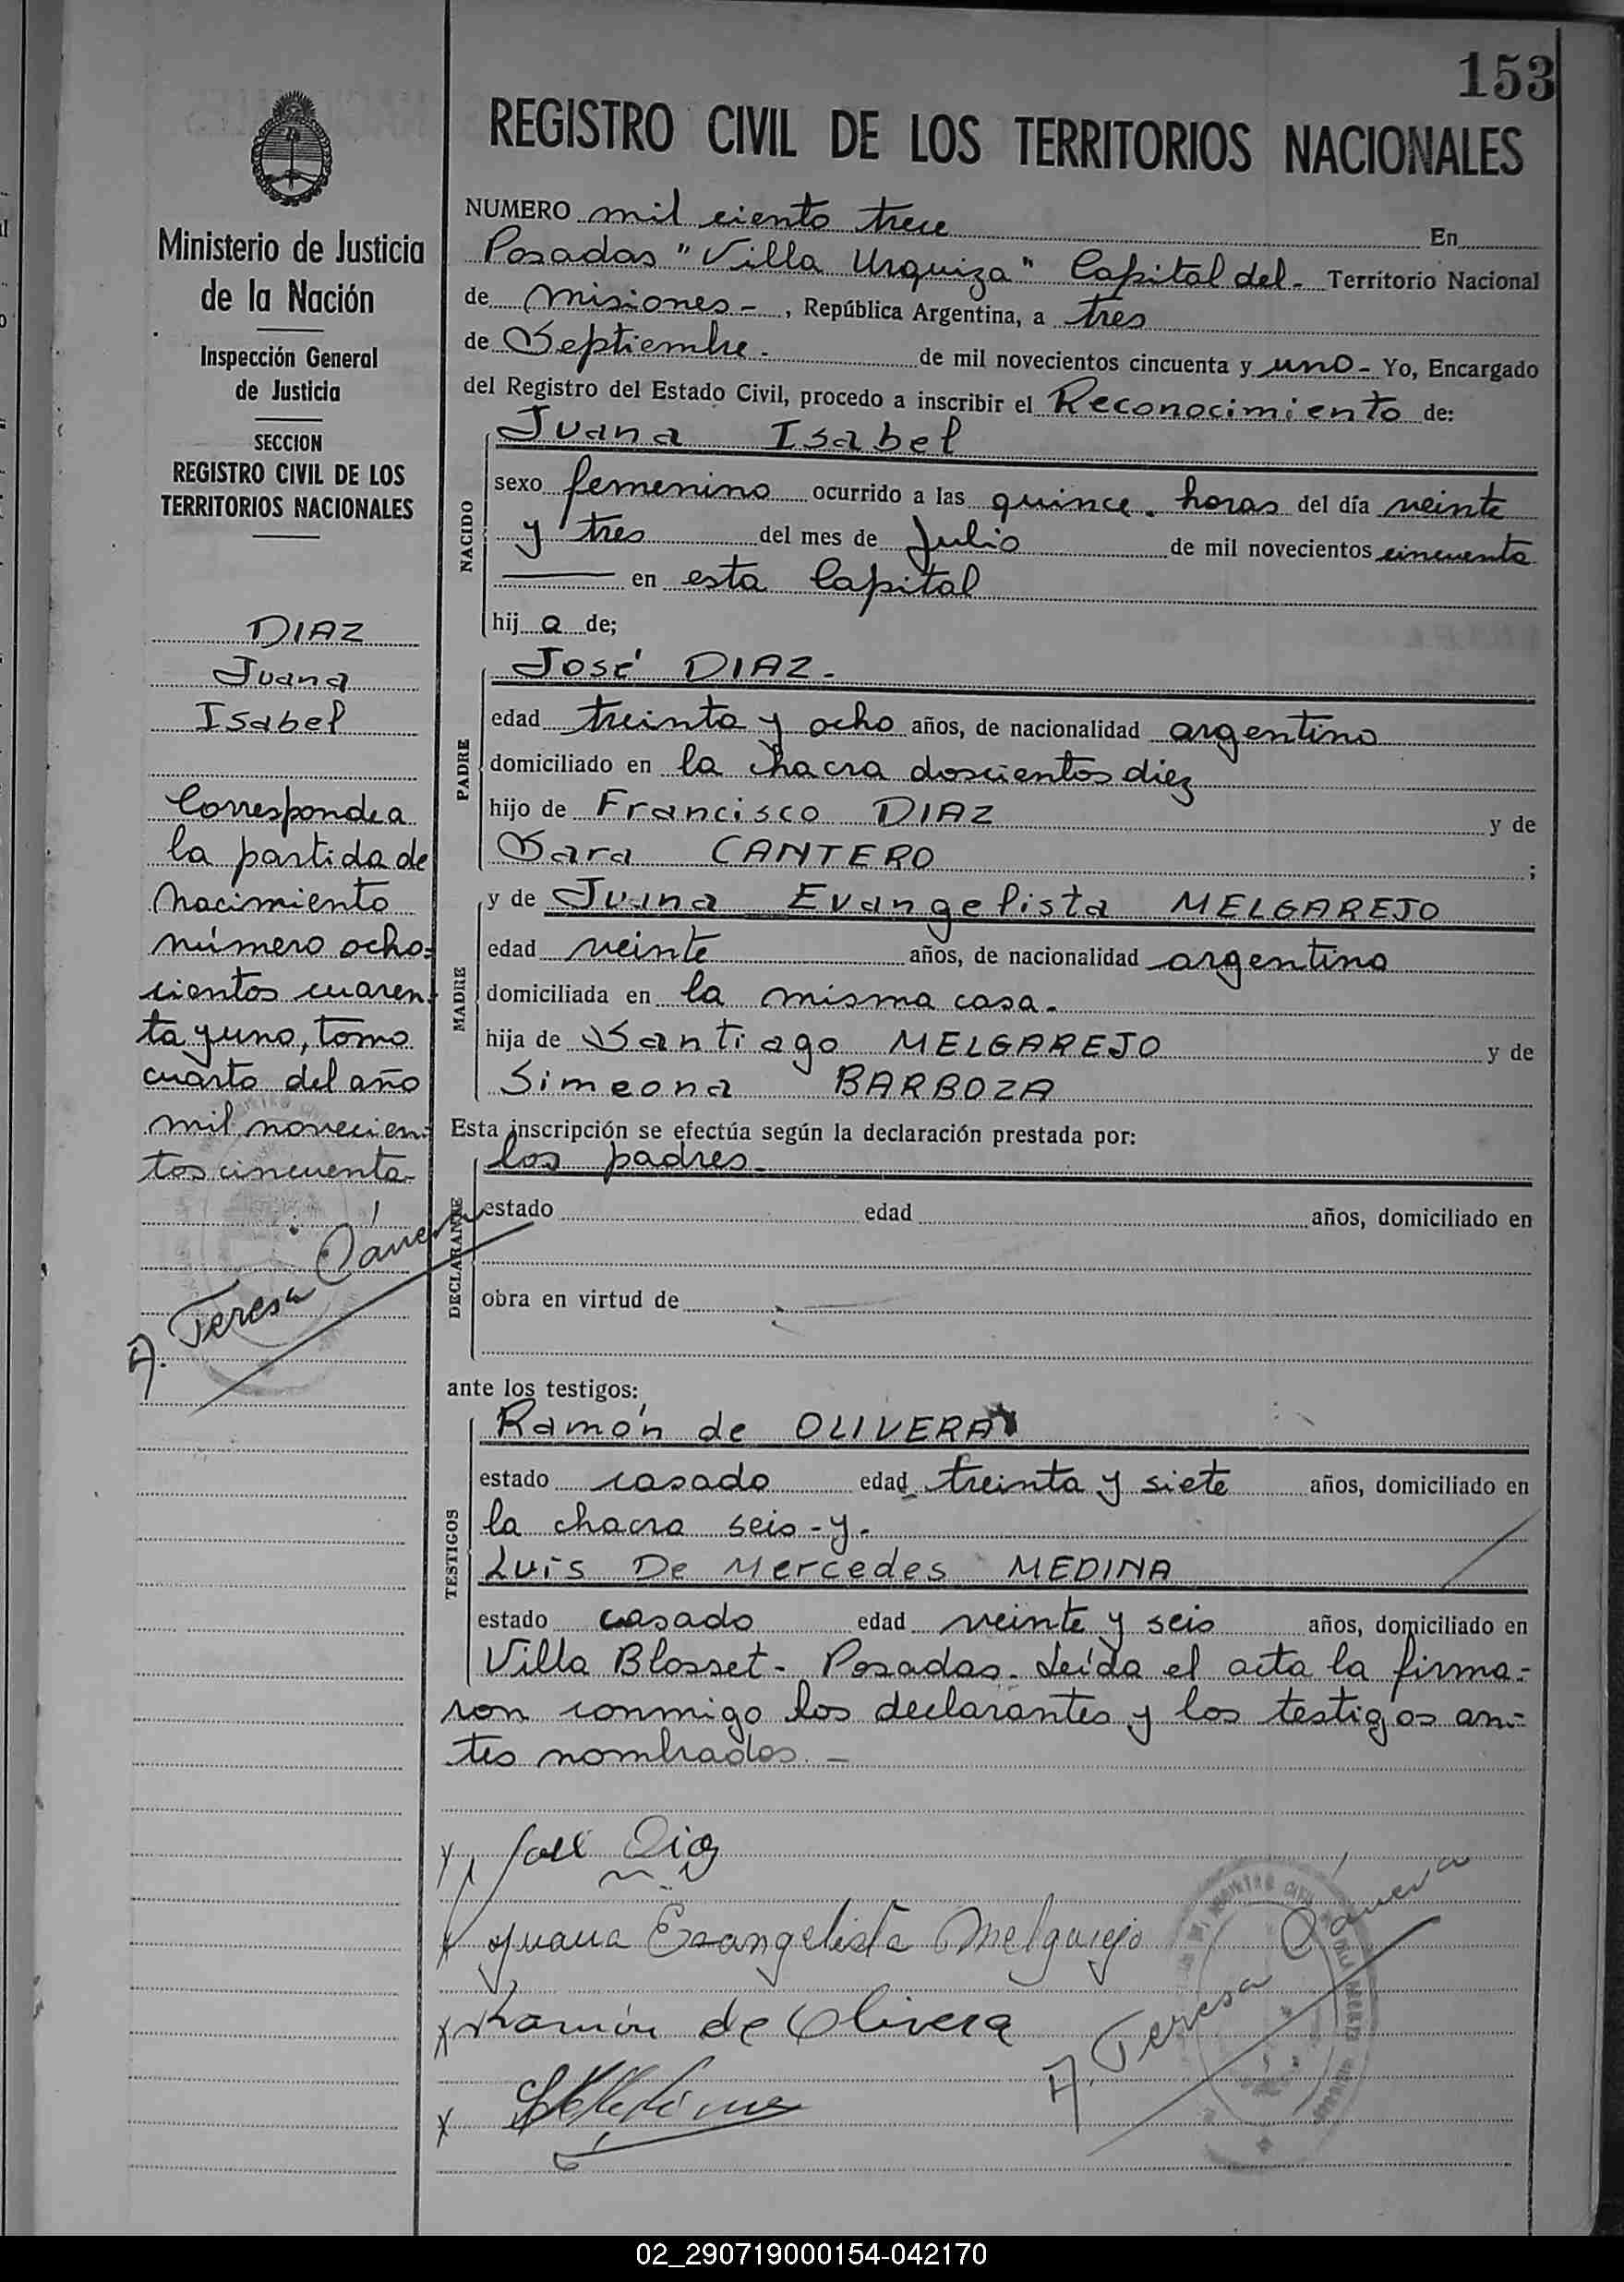 153
REGISTRO CIVIL DE LOS TERRITORIOS NACIONALES
Ministerio de Justicia
de la Nación
Inspección General
de Justicia
SECCION
REGISTRO CIVIL DE LOS
TERRITORIOS NACIONALES
DIAZ
Juana
Isabel
Corresponde a
la partida de
nacimiento
número ocho=
cientos cuaren-
ta y uno, tomo
cuarto del año
mil novecien-
tos cincuenta
A. Teresa
NUMERO mil ciento trece En
Posadas "Villa Urquiza" Capital del- Territorio Nacional
de Misiones-, República Argentina, a tres
de Septiembre. de mil novecientos cincuenta y uno- Yo, Encargado
del Registro del Estado Civil, procedo a inscribir el Reconocimiento de:
NACIDO
Juana Isabel
sexo femenino ocurrido a las quince. horas del día veinte
y tres del mes de Julio de mil novecientos cincuenta
en esta Capital
hij a de;
PADRE
José DIAZ.
edad treinta y ocho años, de nacionalidad argentino
domiciliado en la chacra doscientos diez
hijo de Francisco DIAZ y de
Sara CANTERO ;
MADRE
y de Juana Evangelista MELGAREJO
edad veinte años, de nacionalidad argentina
domiciliada en la misma casa.
hija de Santiago MELGAREJO y de
Simeona BARBOZA
Esta inscripción se efectúa según la declaración prestada por:
DECLARANTE
los padres-
estado edad años, domiciliado en
obra en virtud de
ante los testigos:
TESTIGOS
Ramón de OLIVERA
estado casado edad treinta y siete años, domiciliado en
la chacra seis-y-
Luis De Mercedes MEDINA
estado casado edad veinte y seis años, domiciliado en
Villa Blosset- Posadas. Leída el acta la firma=
ron conmigo los declarantes y los testigos an=
tes nombrados.-
José Diaz
Juana Evangelista Melgarejo
Ramón de Olivera
A. Teresa
02_290719000154-042170